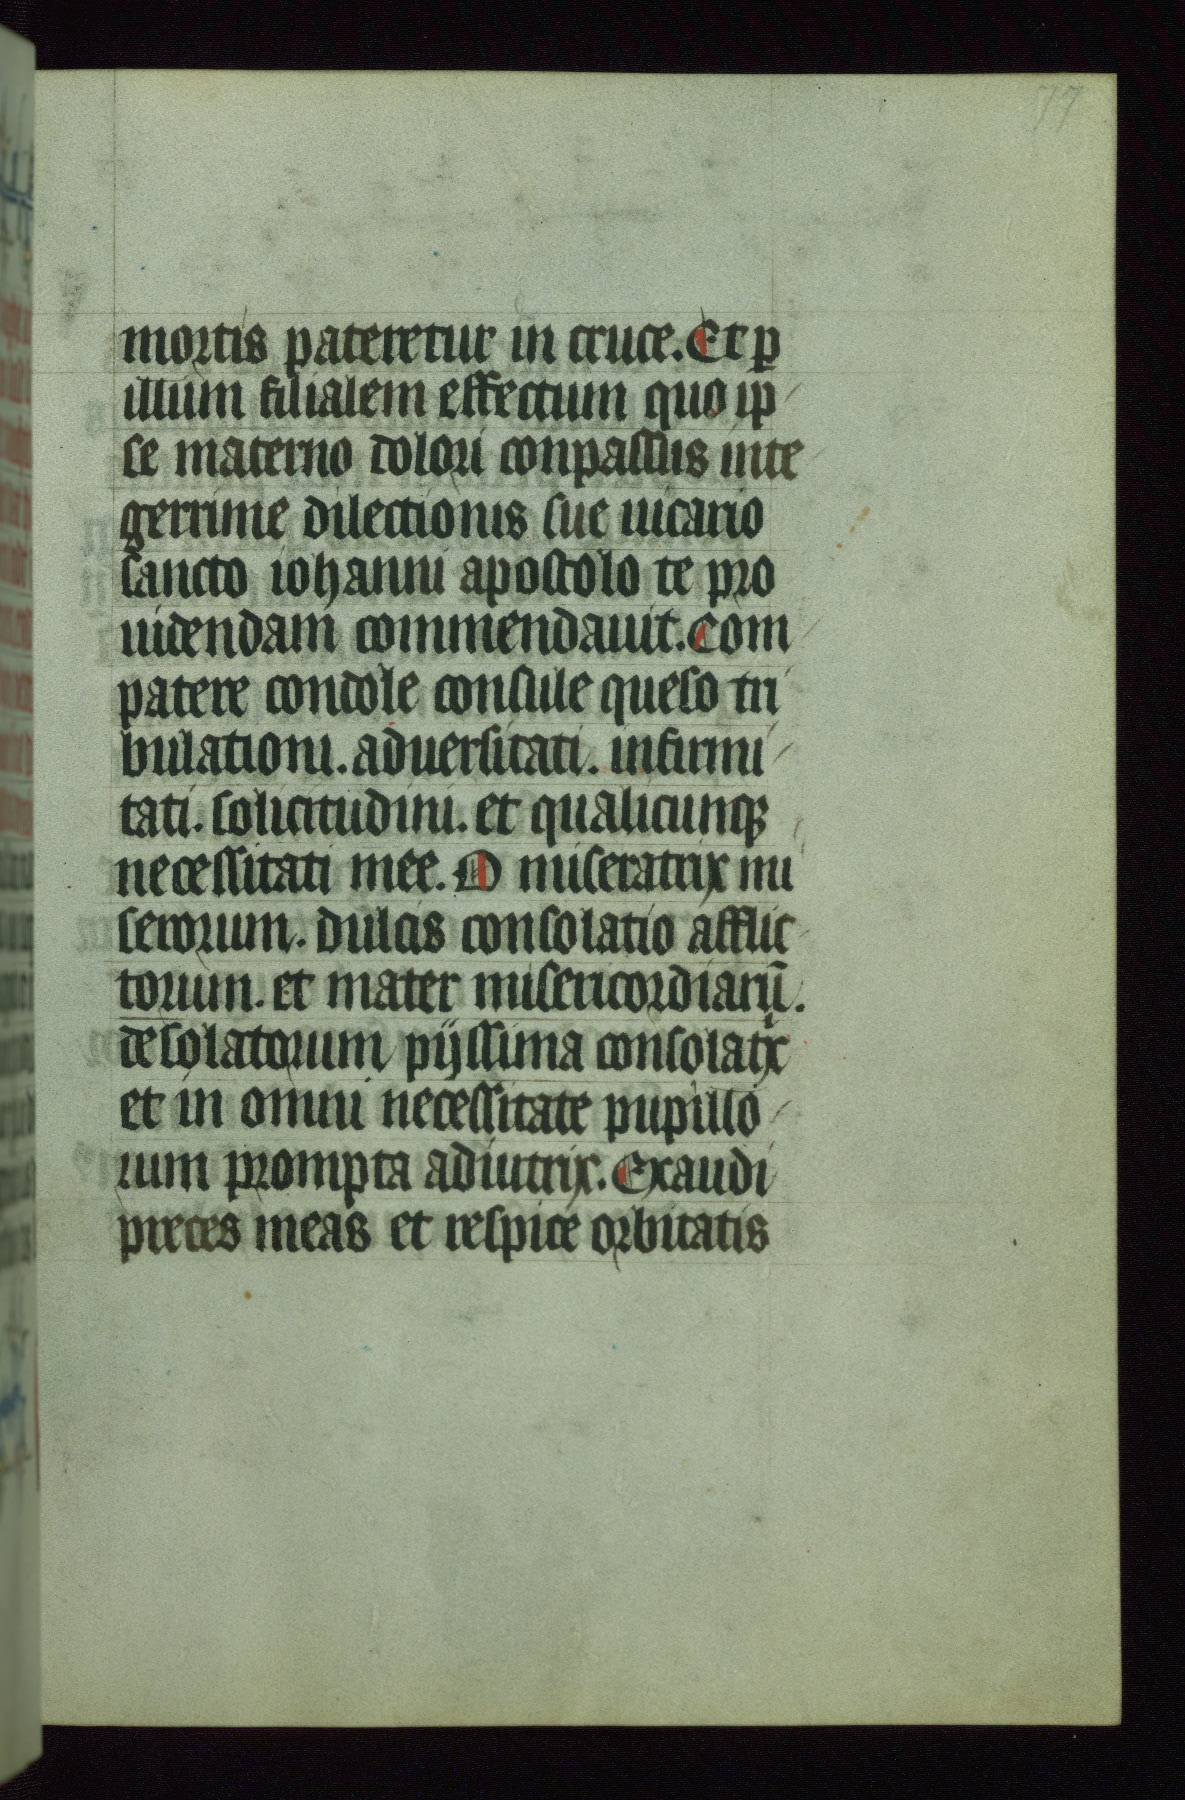 77
mortis pateretur in cruce. Et ꝑ
illum filialem effectum quo ip
se materno dolori conpassus inte
gerrime dilectionis sue uicario
sancto iohanni apostolo te pro
uidendam commendauit. Com
patere condole consule queso tri
bulationi. aduersitati. infirmi
tati. solicitudini. et qualicunqꝫ
necessitati mee. O miseratrix mi
serorum. dulcis consolatio afflic
torum. et mater misericordiarū.
desolatorum pijssima consolatⁱx
et in omni necessitate pupillo
rum prompta adiutrix. Exaudi
preces meas et respice orbitatis